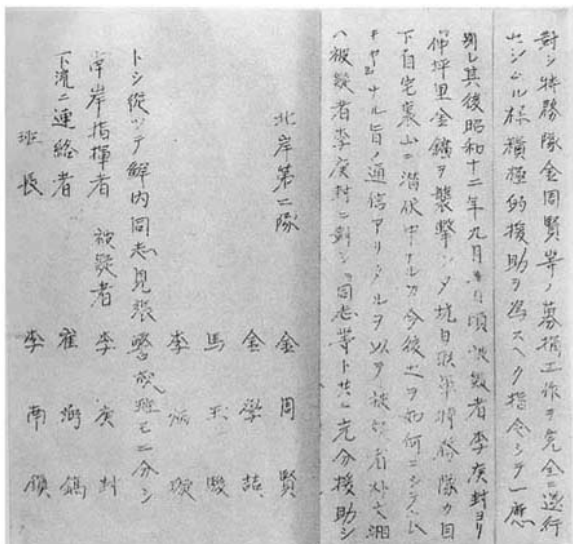 對シ特務隊金周賢等ノ募捐工作ヲ完全ニ遂行
出シムル樣積極的援助ヲ為スヘク指令シテ一應
別レ其後昭和十二年九月 頃被疑者李庚封ヨリ
坪里金鑛ヲ襲撃シタ抗日聯軍特務隊カ目
下自宅裏山ニ潜伏中ナルカ今後之ヲ如何ニシテ
ナル旨ノ通信アリタルヲ以テ被疑者朴
ハ被疑者李庚封ニ對シ同志等ト共ニ充分援助シ
北岸第一隊
金周賢
金學
馬
李
トシ從ツテ鮮内同志見張警戒班モ二分シ
岸指揮者 被疑者 李庚封
下流ニ連絡者 崔
班長 李南